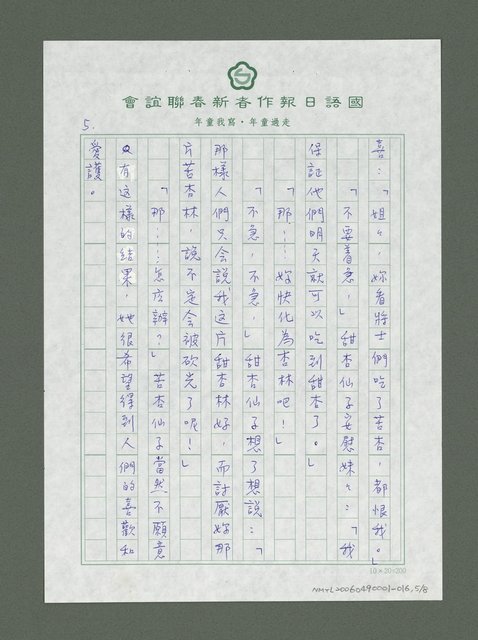 國語日報作者新春聯誼會
走過童年・寫我童年
5.
喜：「姐々，妳看將士們吃了苦杏，都恨我。」
「不要着急，」甜杏仙子安慰妹々：「我
保証他們明天就可以吃到甜杏了。」
「那……妳快化為杏林吧！」
「不急，不急，」甜杏仙子想了想說：「
那樣人們只会說我这片甜杏林好，而討厭妳那
片苦杏林，說不定会被砍光了呢！」
「那……怎広辦？」苦杏仙子當然不願意
有这樣的結果，她很希望得到人們的喜歡和
愛護。
10×20=200
NMTL20060490001-016, 5/8